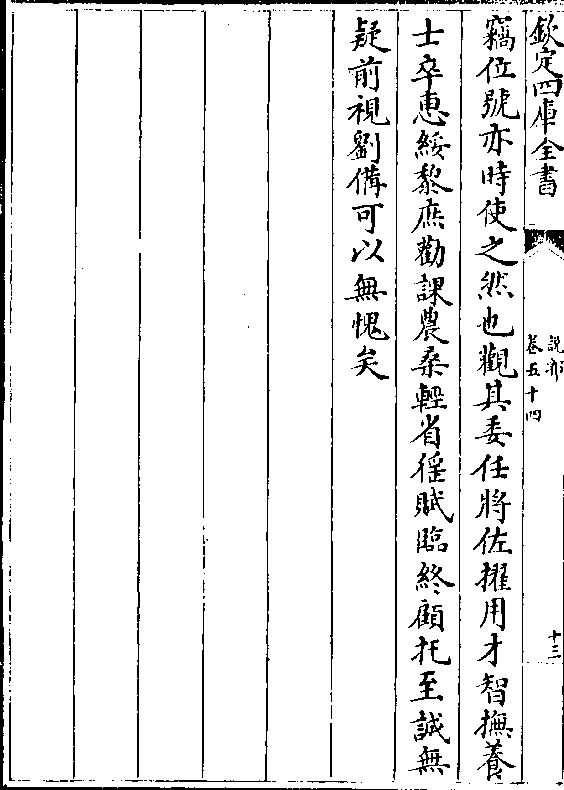 欽定四庫全書
說郛
卷五十四
十三
竊位號亦時使之然也觀其委任將佐擢用才智撫養
士卒惠綏黎庶勸課農桑輕省徭賦臨終顧托至誠無
疑前視劉備可以無愧矣